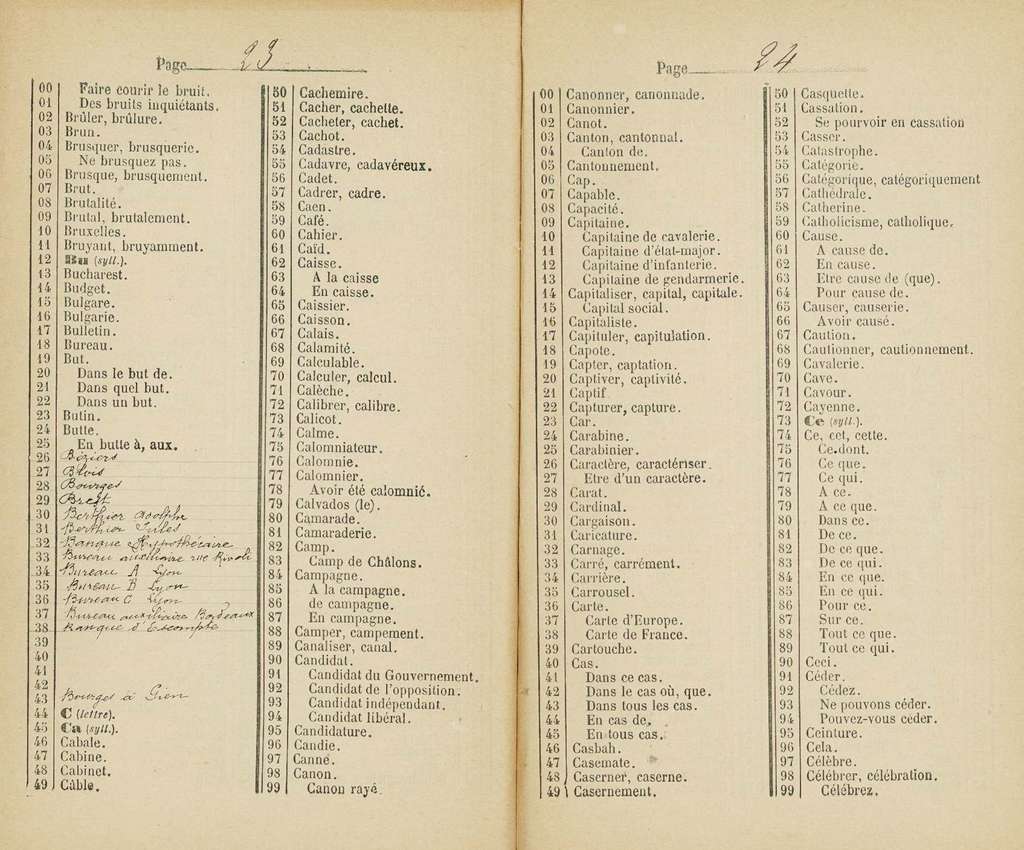 Page 23
00 Faire courir le bruit.
01 Des bruits inquiétants.
02 Brûler, brûlure.
03 Brun.
04 Brusquer, brusquerie.
05 Ne brusquez pas.
06 Brusque, brusquement.
07 Brut.
08 Brutalité.
09 Brutal, brutalement.
10 Bruxelles.
11 Bruyant, bruyamment.
12 Bu (syll.).
13 Bucharest.
14 Budget.
15 Bulgare.
16 Bulgarie.
17 Bulletin.
18 Bureau.
19 But.
20 Dans le but de.
21 Dans quel but.
22 Dans un but.
23 Butin.
24 Butte.
25 En butte à, aux.
26 Béziers
27 Blois
28 Bourges
29 Brest
30 Berthier Adolphe
31 Berthier Jules
32 Banque Hypothécaire
33 Bureau auxiliaire rue Rivoli
34 Bureau A Lyon
35 Bureau B Lyon
36 Bureau C Lyon
37 Bureau auxiliaire Bordeaux
38 Banque d'Escompte
39
40
41
42
43 Bourges à Gien
44 C (lettre).
45 Ca (syll.).
46 Cabale.
47 Cabine.
48 Cabinet.
49 Câble.
50 Cachemire.
51 Cacher, cachette.
52 Cacheter, cachet.
53 Cachot.
54 Cadastre.
55 Cadavre, cadavéreux.
56 Cadet.
57 Cadrer, cadre.
58 Caen.
59 Café.
60 Cahier.
61 Caïd.
62 Caisse.
63 A la caisse
64 En caisse.
65 Caissier.
66 Caisson.
67 Calais.
68 Calamité.
69 Calculable.
70 Calculer, calcul.
71 Calèche.
72 Calibrer, calibre.
73 Calicot.
74 Calme.
75 Calomniateur.
76 Calomnie.
77 Calomnier.
78 Avoir été calomnié.
79 Calvados (le).
80 Camarade.
81 Camaraderie.
82 Camp.
83 Camp de Châlons.
84 Campagne.
85 A la campagne.
86 de campagne.
87 En campagne.
88 Camper, campement.
89 Canaliser, canal.
90 Candidat.
91 Candidat du Gouvernement.
92 Candidat de l'opposition.
93 Candidat indépendant.
94 Candidat libéral.
95 Candidature.
96 Candie.
97 Canne.
98 Canon.
99 Canon rayé.
Page 24
00 Canonner, canonnade.
01 Canonnier.
02 Canot.
03 Canton, cantonnal.
04 Canton de.
05 Cantonnement.
06 Cap.
07 Capable.
08 Capacité.
09 Capitaine.
10 Capitaine de cavalerie.
11 Capitaine d'état-major.
12 Capitaine d'infanterie.
13 Capitaine de gendarmerie.
14 Capitaliser, capital, capitale.
15 Capital social.
16 Capitaliste.
17 Capituler, capitulation.
18 Capote.
19 Capter, captation.
20 Captiver, captivité.
21 Captif.
22 Capturer, capture.
23 Car.
24 Carabine.
25 Carabinier.
26 Caractère, caractériser.
27 Etre d'un caractère.
28 Carat.
29 Cardinal.
30 Cargaison.
31 Caricature.
32 Carnage.
33 Carré, carrément.
34 Carrière.
35 Carrousel.
36 Carte.
37 Carte d'Europe.
38 Carte de France.
39 Cartouche.
40 Cas.
41 Dans ce cas.
42 Dans le cas où, que.
43 Dans tous les cas.
44 En cas de.
45 En tous cas.
46 Casbah.
47 Casemate.
48 Caserner, caserne.
49 Casernement.
50 Casquette.
51 Cassation.
52 Se pourvoir en cassation
53 Casser.
54 Catastrophe.
55 Catégorie.
56 Catégorique, catégoriquement
57 Cathédrale.
58 Catherine.
59 Catholicisme, catholique.
60 Cause.
61 A cause de.
62 En cause.
63 Etre cause de (que).
64 Pour cause de.
65 Causer, causerie.
66 Avoir causé.
67 Caution.
68 Cautionner, cautionnement.
69 Cavalerie.
70 Cave.
71 Cavour.
72 Cayenne.
73 Ce (syll.).
74 Ce, cet, cette.
75 Ce dont.
76 Ce que.
77 Ce qui.
78 A ce.
79 A ce que.
80 Dans ce.
81 De ce.
82 De ce que.
83 De ce qui.
84 En ce que.
85 En ce qui.
86 Pour ce.
87 Sur ce.
88 Tout ce que.
89 Tout ce qui.
90 Ceci.
91 Céder.
92 Cédez.
93 Ne pouvons céder.
94 Pouvez-vous céder.
95 Ceinture.
96 Cela.
97 Célèbre.
98 Célébrer, célébration.
99 Célébrez.